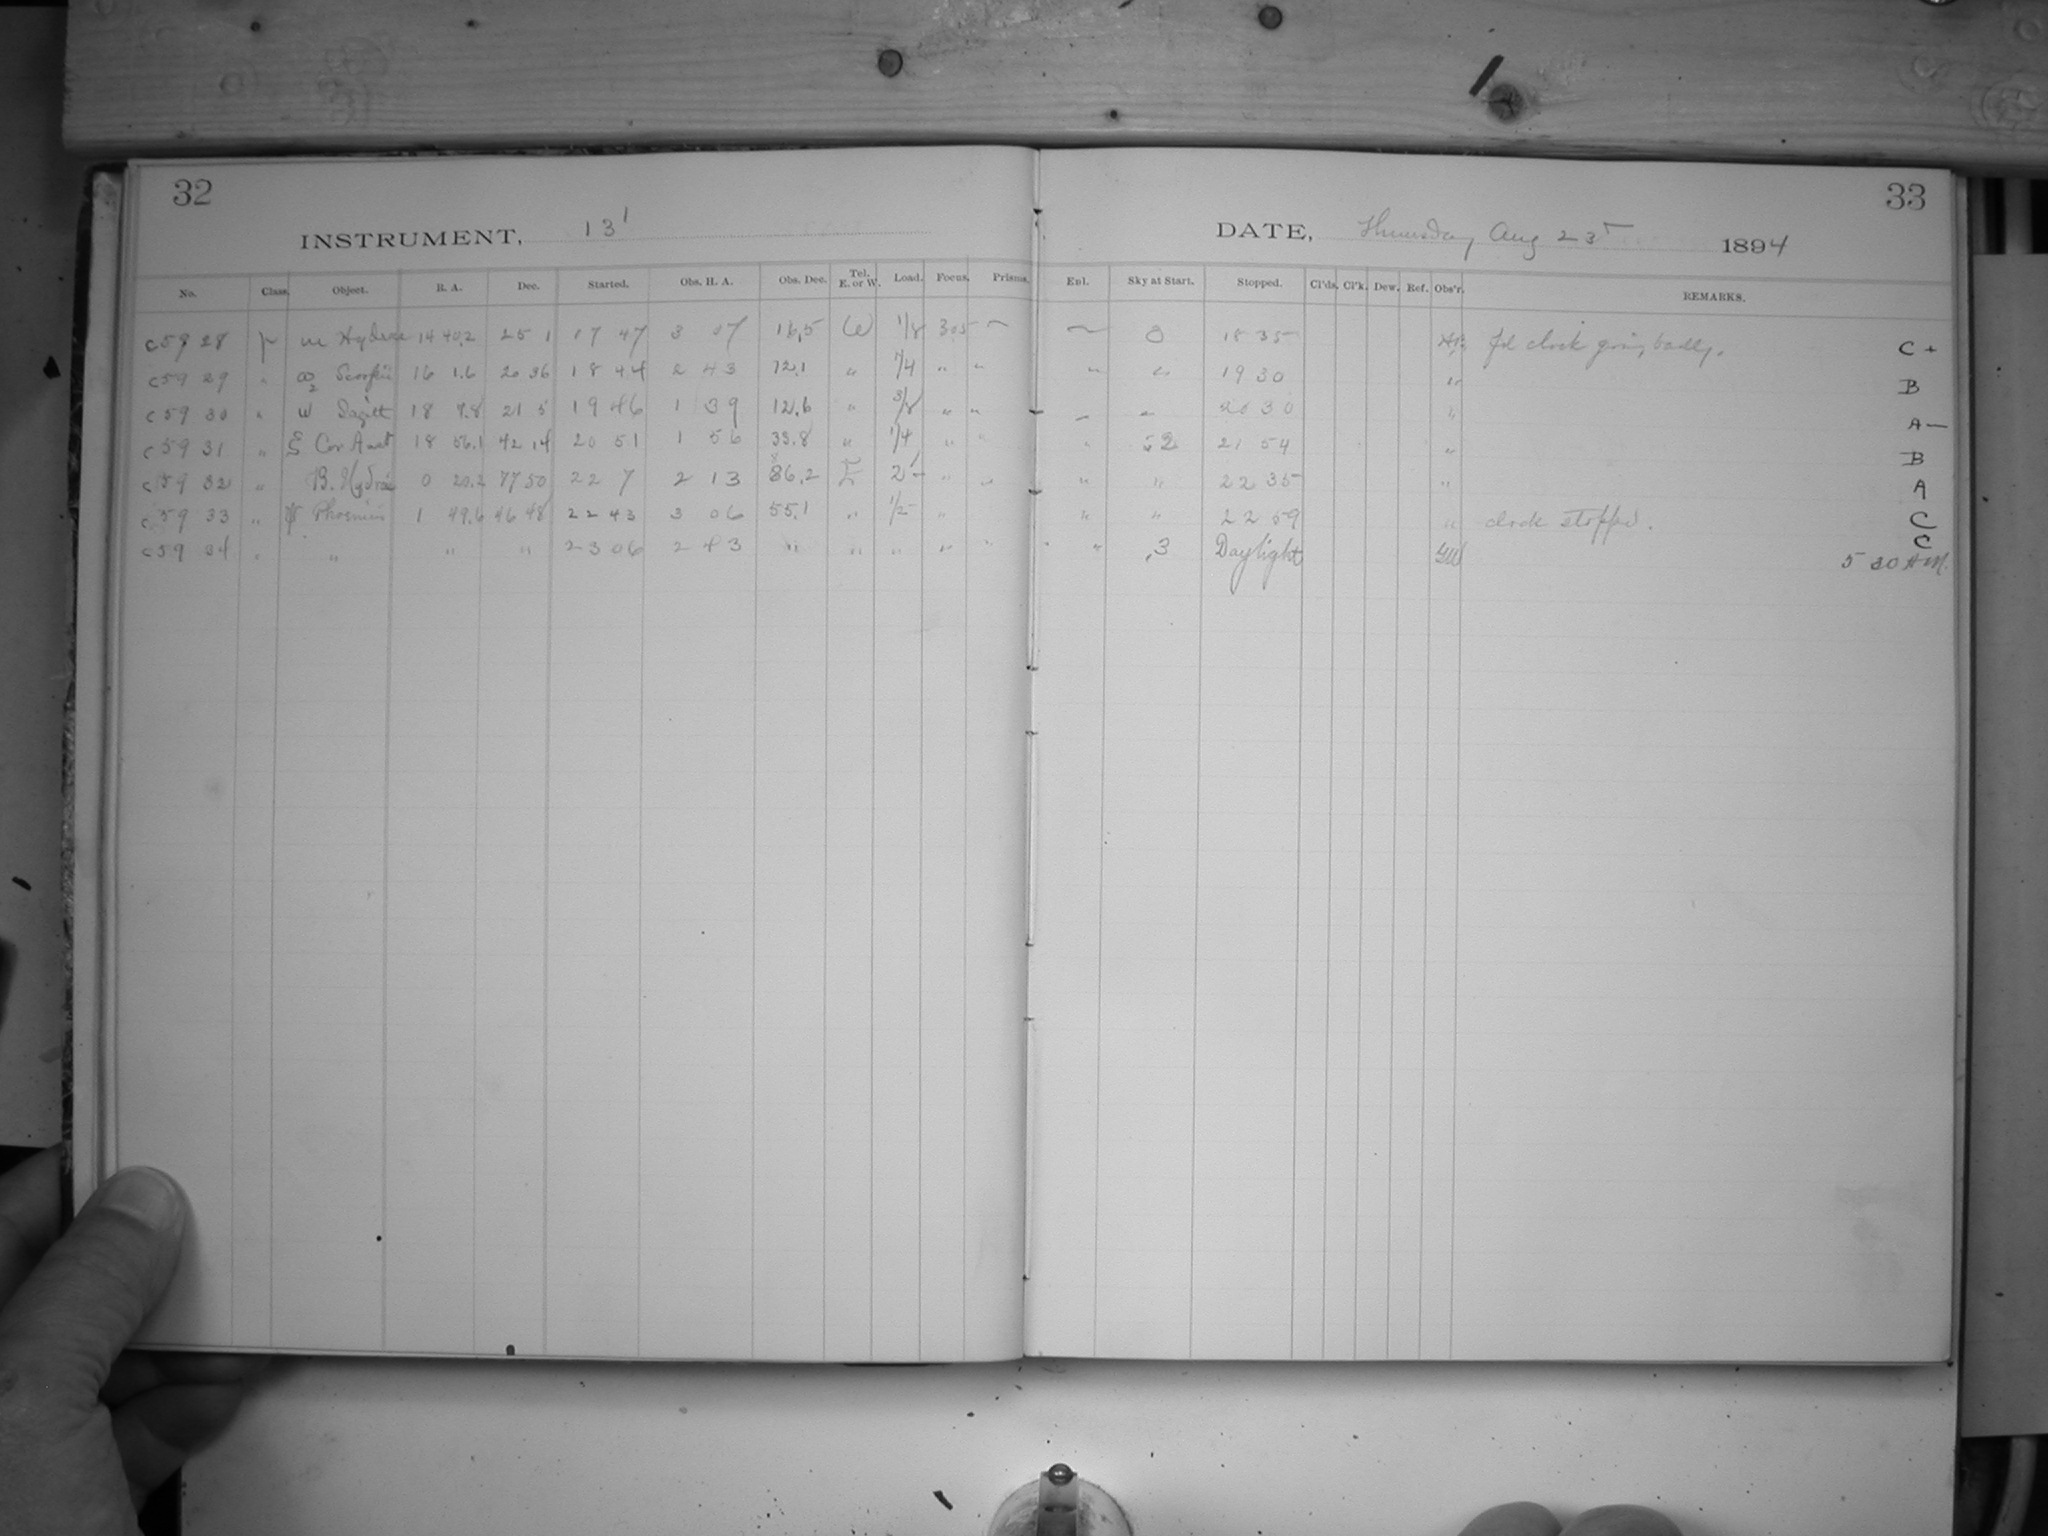 32
33
INSTRUMENT, 13'
DATE, Thursday Aug 23 1894
No. Class. Object. R. A. Dec. Started. Obs. H. A. Obs. Dec. Tel. E. or W. Load. Focus. Prisms. Enl. Sky at Start. Stopped. Cl'ds. Cl'k. Dew. Ref. Obs'r. REMARKS.
c59 28 m Hydrae 14 40.2 25 1 17 47 3 07 16.5 W 1/8 30.5 0 18 35 clock going badly. C +
c59 29 " ω2 Scorpii 16 1.6 20 36 18 44 2 43 12.1 " 1/4 " " " " 19 30 " B
c59 30 " Sagitt 18 7.8 21 5 19 46 1 39 12.6 " 3/8 " " 20 30 " A—
c59 31 " Cor Aust 18 56.1 42 14 20 51 1 56 33.8 " 1/4 " " " 21 54 " B
c59 32 " B. Hydri 0 20.2 77 50 22 7 2 13 86.2 E " " " " 22 35 " A
c59 33 " ψ Phoenicis 1 49.6 46 48 22 43 3 06 55.1 " 1/2 " " " 22 59 " clock stopped. C
c59 34 " " " " 23 06 2 43 " " " " " " " .3 Daylight C
5 20 AM.